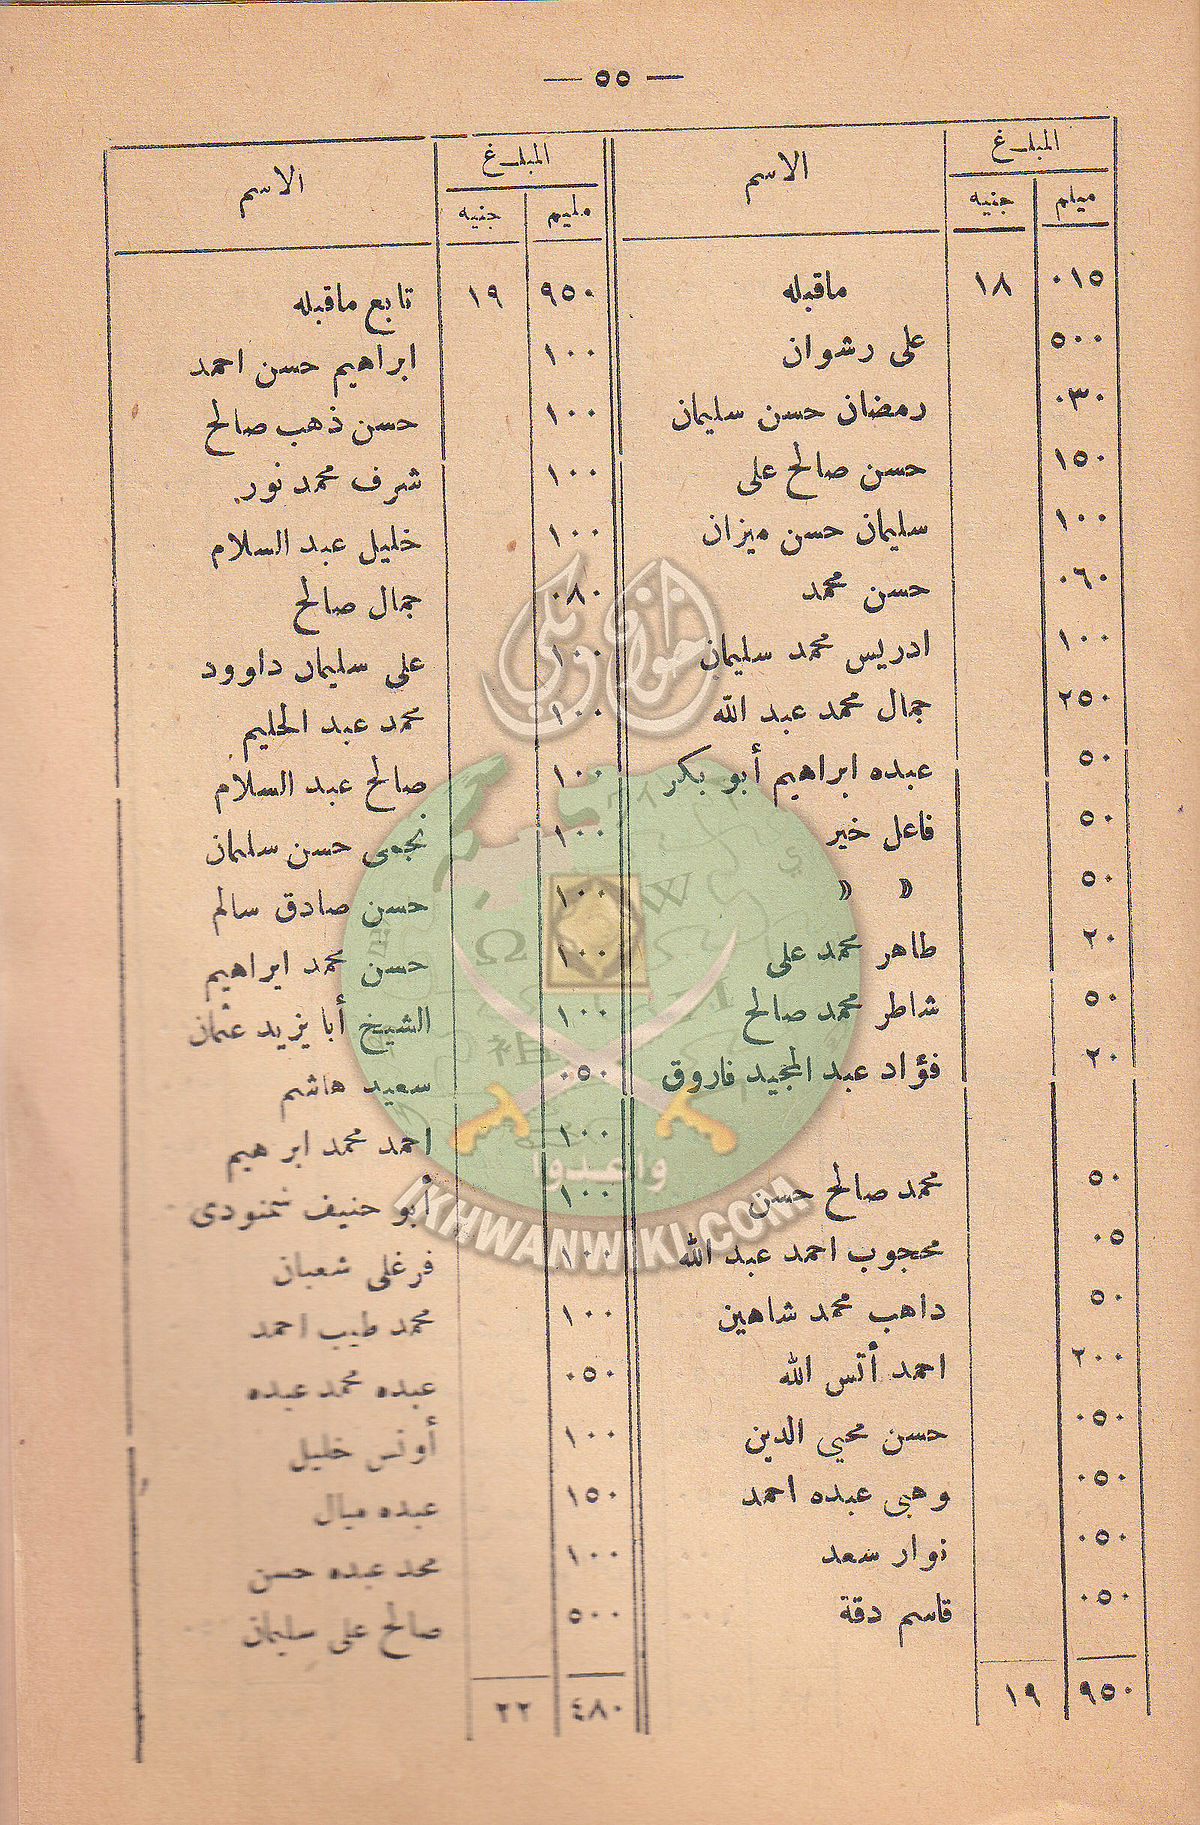 — ٥٥ —
المبلغ الاسم
مليم جنيه
٠١٥ ١٨ ماقبله
٥٠٠ على رشوان
٠٣٠ رمضان حسن سليمان
١٥٠ حسن صالح على
١٠٠ سليمان حسن ميزان
٠٦٠ حسن محمد
١٠٠ ادريس محمد سليمان
٢٥٠ جمال محمد عبد الله
٥٠ عبده ابراهيم أبو بكر
٥٠ فاعل خير
٥٠ » »
٢٠ طاهر محمد على
٥٠ شاطر محمد صالح
٢٠ فؤاد عبد المجيد فاروق
٥٠ محمد صالح حسن
٠٥ محجوب احمد عبد الله
٥٠ داهب محمد شاهين
٢٠٠ احمد أتس الله
٠٥٠ حسن محيي الدين
٠٥٠ وهبى عبده احمد
٠٥٠ نوار سعد
٠٥٠ قاسم دقة
٩٥٠ ١٩
المبلغ الاسم
مليم جنيه
٩٥٠ ١٩ تابع ماقبله
١٠٠ ابراهيم حسن احمد
١٠٠ حسن ذهب صالح
١٠٠ شرف محمد نور
١٠٠ خليل عبد السلام
٠٨٠ جمال صالح
١٠٠ على سليمان داوود
١٠٠ محمد عبد الحليم
١٠٠ صالح عبد السلام
١٠٠ نجمى حسن سليمان
١٠٠ حسن صادق سالم
١٠٠ حسن محمد ابراهيم
١٠٠ الشيخ أبا يزيد عثمان
٠٥٠ سعيد هاشم
١٠٠ احمد محمد ابرهيم
١٠٠ أبو حنيف شمنودى
١٠٠ فرغلى شعبان
١٠٠ محمد طيب احمد
٠٥٠ عبده محمد عبده
١٠٠ أونس خليل
١٥٠ عبده ميال
١٠٠ محمد عبده حسن
٥٠٠ صالح على سليمان
٤٨٠ ٢٢
إخوان ويكي
وأعدوا
IKHWANWIKI.COM